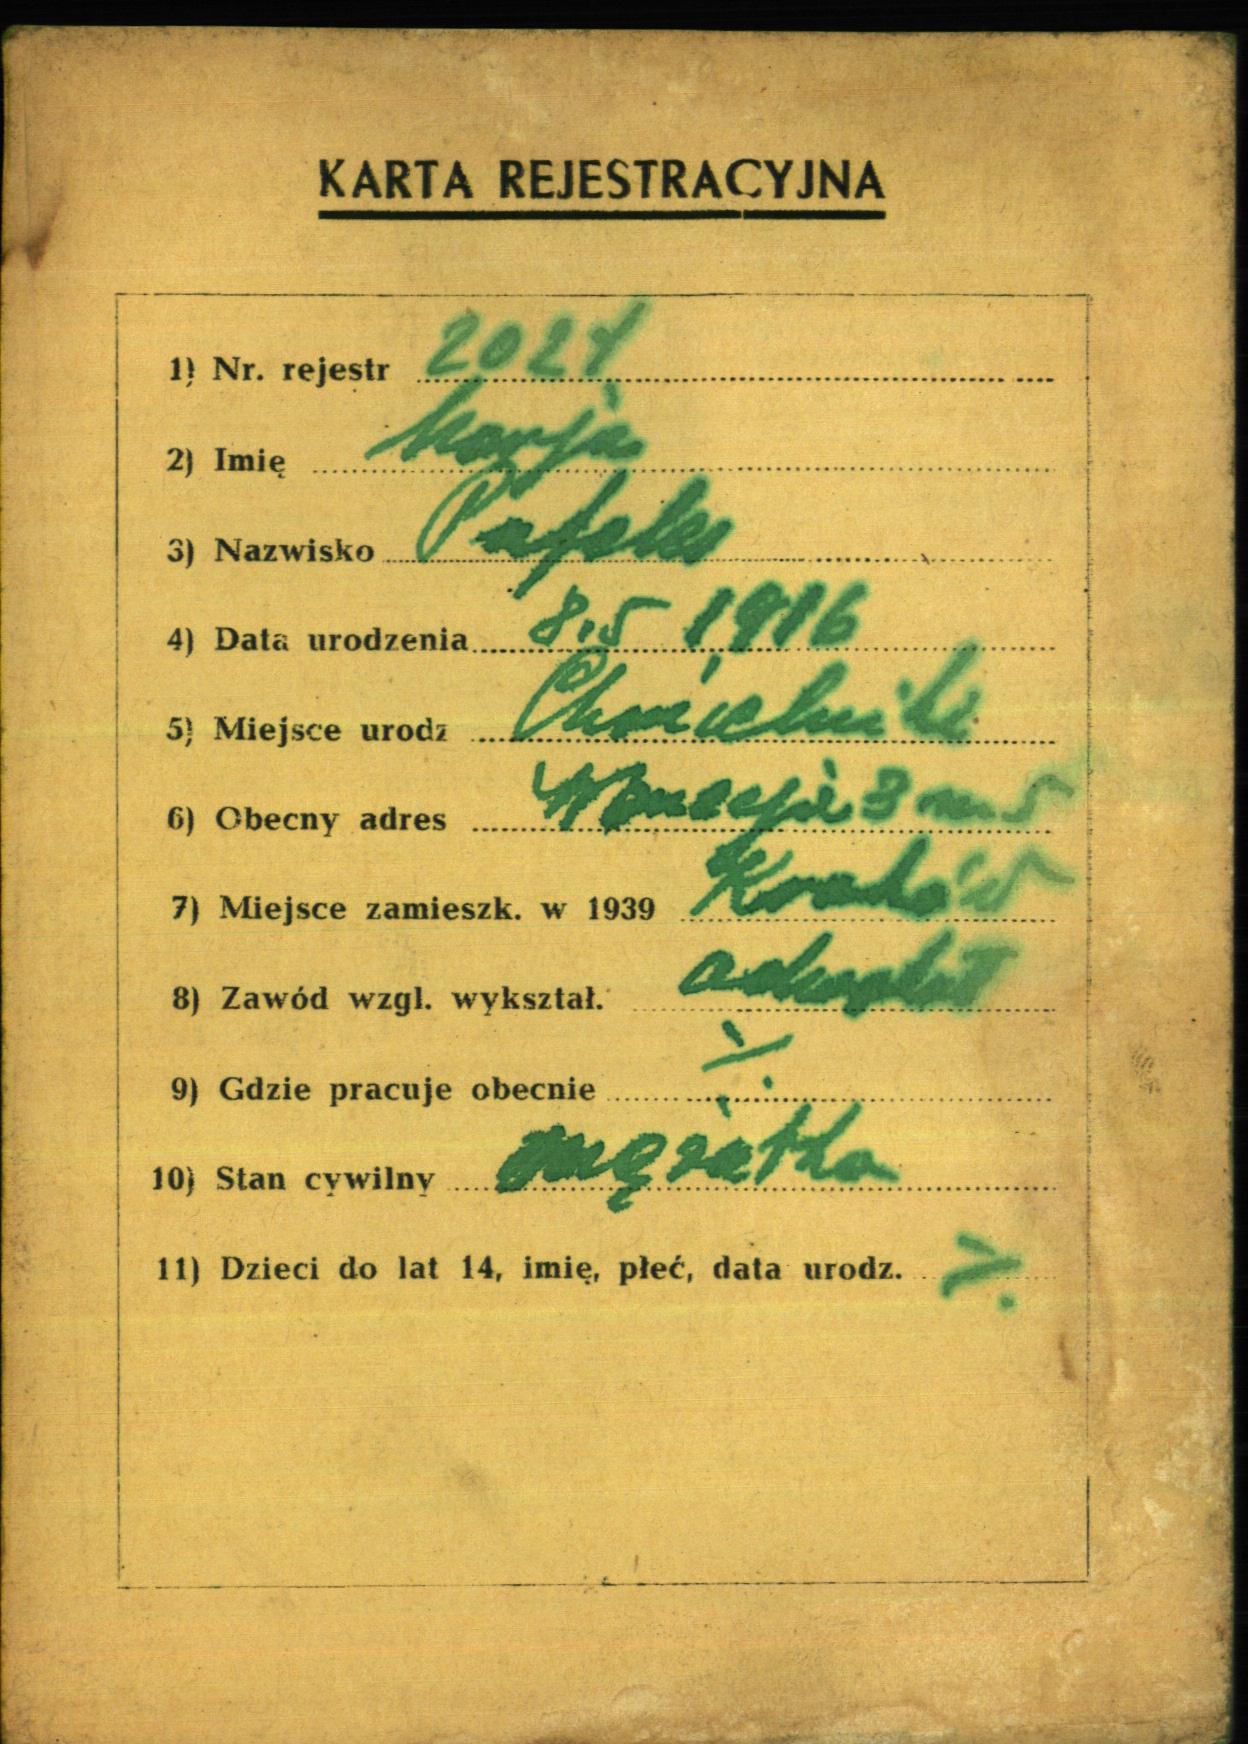 KARTA REJESTRACYJNA
1) Nr. rejestr 2024
2) Imię Marja
3) Nazwisko
4) Data urodzenia 8.5 1916
5) Miejsce urodz
6) Obecny adres 3 m 5
7) Miejsce zamieszk. w 1939 Kraków
8) Zawód wzgl. wykształ. adwokat
9) Gdzie pracuje obecnie
10) Stan cywilny mężatka
11) Dzieci do lat 14, imię, płeć, data urodz.